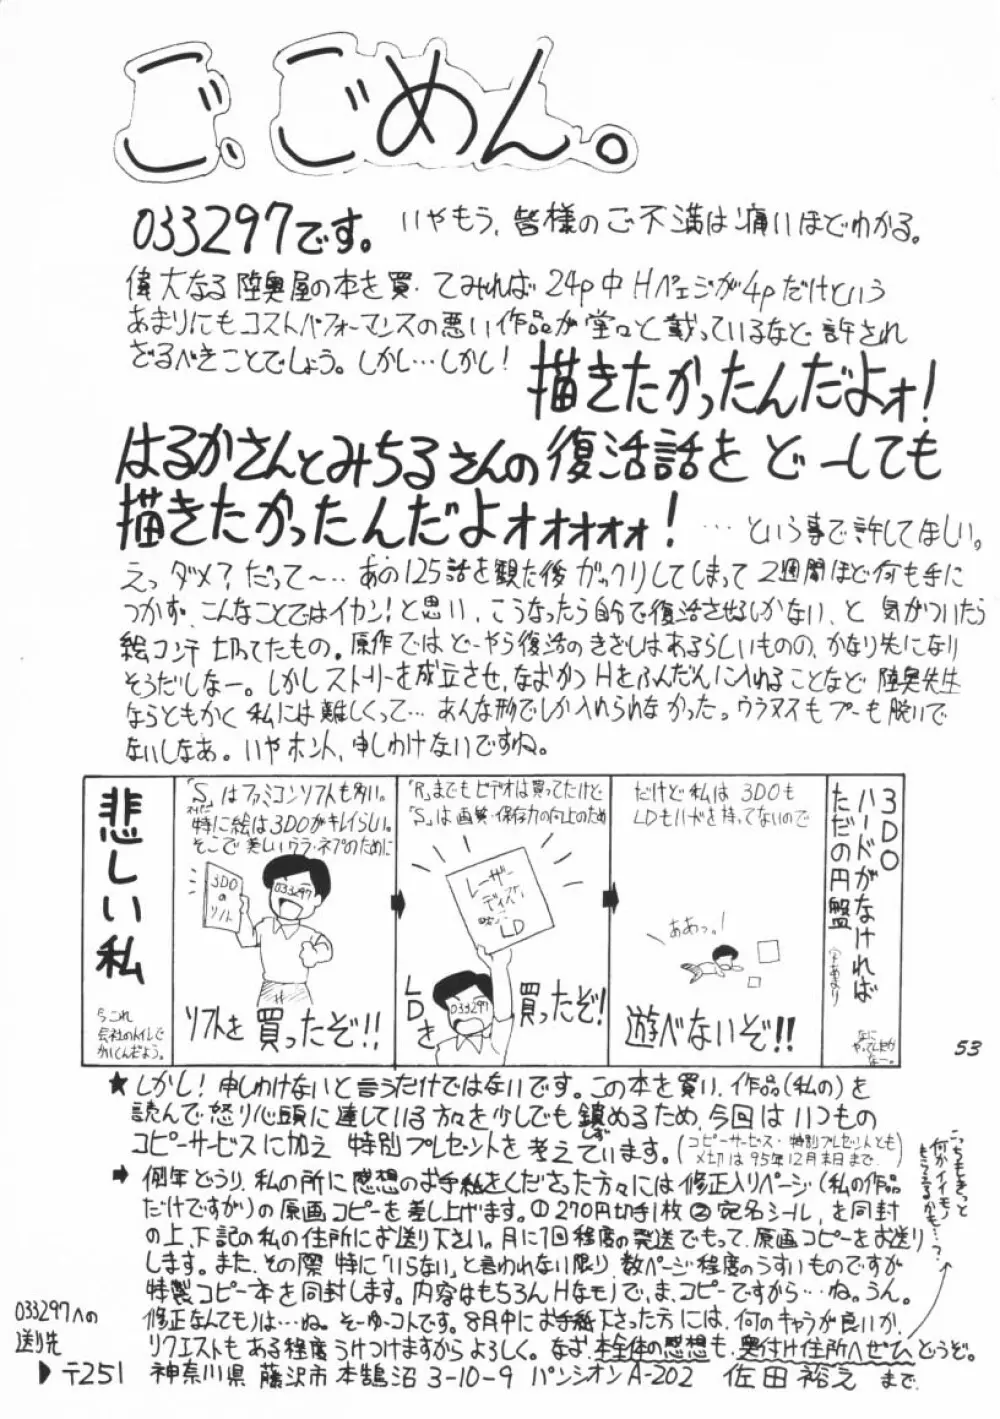 ご、ごめん。
033297です。いやもう、皆様のご不満は痛いほどわかる。
偉大なる陸奥屋の本を買ってみれば24p中Hページが4pだけという
あまりにもコストパフォーマンスの悪い作品が堂々と載っているなど許され
ざるべきことでしょう。しかし…しかし!
描きたかったんだよォ!
はるかさんとみちるさんの復活話をどーしても
描きたかったんだよォォォォォ! …という事で許してほしい。
えっダメ?だって〜…あの125話を観た後ガックリしてしまって2週間ほど何も手に
つかず、こんなことではイカン!と思い、こうなったら自分で復活させるしかない、と気がついたら
絵コンテ切ってたもの。原作ではどーやら復活のきざしはあるらしいものの、かなり先になり
そうだしなー。しかしストーリーを成立させ、なおかつHをふんだんに入れることなど陸奥先生
ならともかく私には難しくって…あんな形でしか入れられなかった。ウラヌスもプーも脱いで
ないしなあ。いやホント、申しわけないですね。
悲しい私
今これ
会社のトイレで
かいてんだよう。
「S」はファミコンソフトも多い。
特に絵は3DOがキレイらしい。
そこで美しいウラ・ネプのために
3DO
の
ソフト
033297
ソフトを買ったぞ!!
「R」までもビデオは買ってたけど
「S」は画質・保存力の向上のため
レーザー
ディスク
LD
033297
LDを買ったぞ!
だけど私は3DOも
LDもハードを持ってないので
ああっ!
遊べないぞ!!
3DO
ハードがなければ
ただの円盤
(字あまり)
なに
やってんだか
なー。
53
★しかし!申しわけないと言うだけではないです。この本を買い、作品(私の)を
読んで怒り心頭に達している方々を少しでも鎮めるため、今回はいつもの
しず
コピーサービスに加え特別プレゼントを考えています。(コピーサービス・特別プレゼントとも
〆切は95年12月末日まで)
➡例年どうり、私の所に感想のお手紙をくださった方々には修正入りページ(私の作品
だけですが)の原画コピーを差し上げます。①270円切手1枚②宛名シール、を同封
の上、下記の私の住所にお送り下さい。月に1回程度の発送でもって、原画コピーをお送り
します。また、その際特に「いらない」と言われない限り、数ページ程度のうすいものですが
特製コピー本を同封します。内容はもちろんHなモノで、ま、コピーですから…ね。うん。
修正なんてものは…ね。そーゆーコトです。8月中にお手紙下さった方には、何のキャラが良いか、
リクエストもある程度うけつけますからよろしく。なお、本全体の感想も、奥付け住所へぜひどうぞ。
何かイイモノ
もらえるかも…?
033297への
送り先
▶〒251 神奈川県藤沢市本鵠沼3-10-9 パンシオンA-202 佐田裕之まで